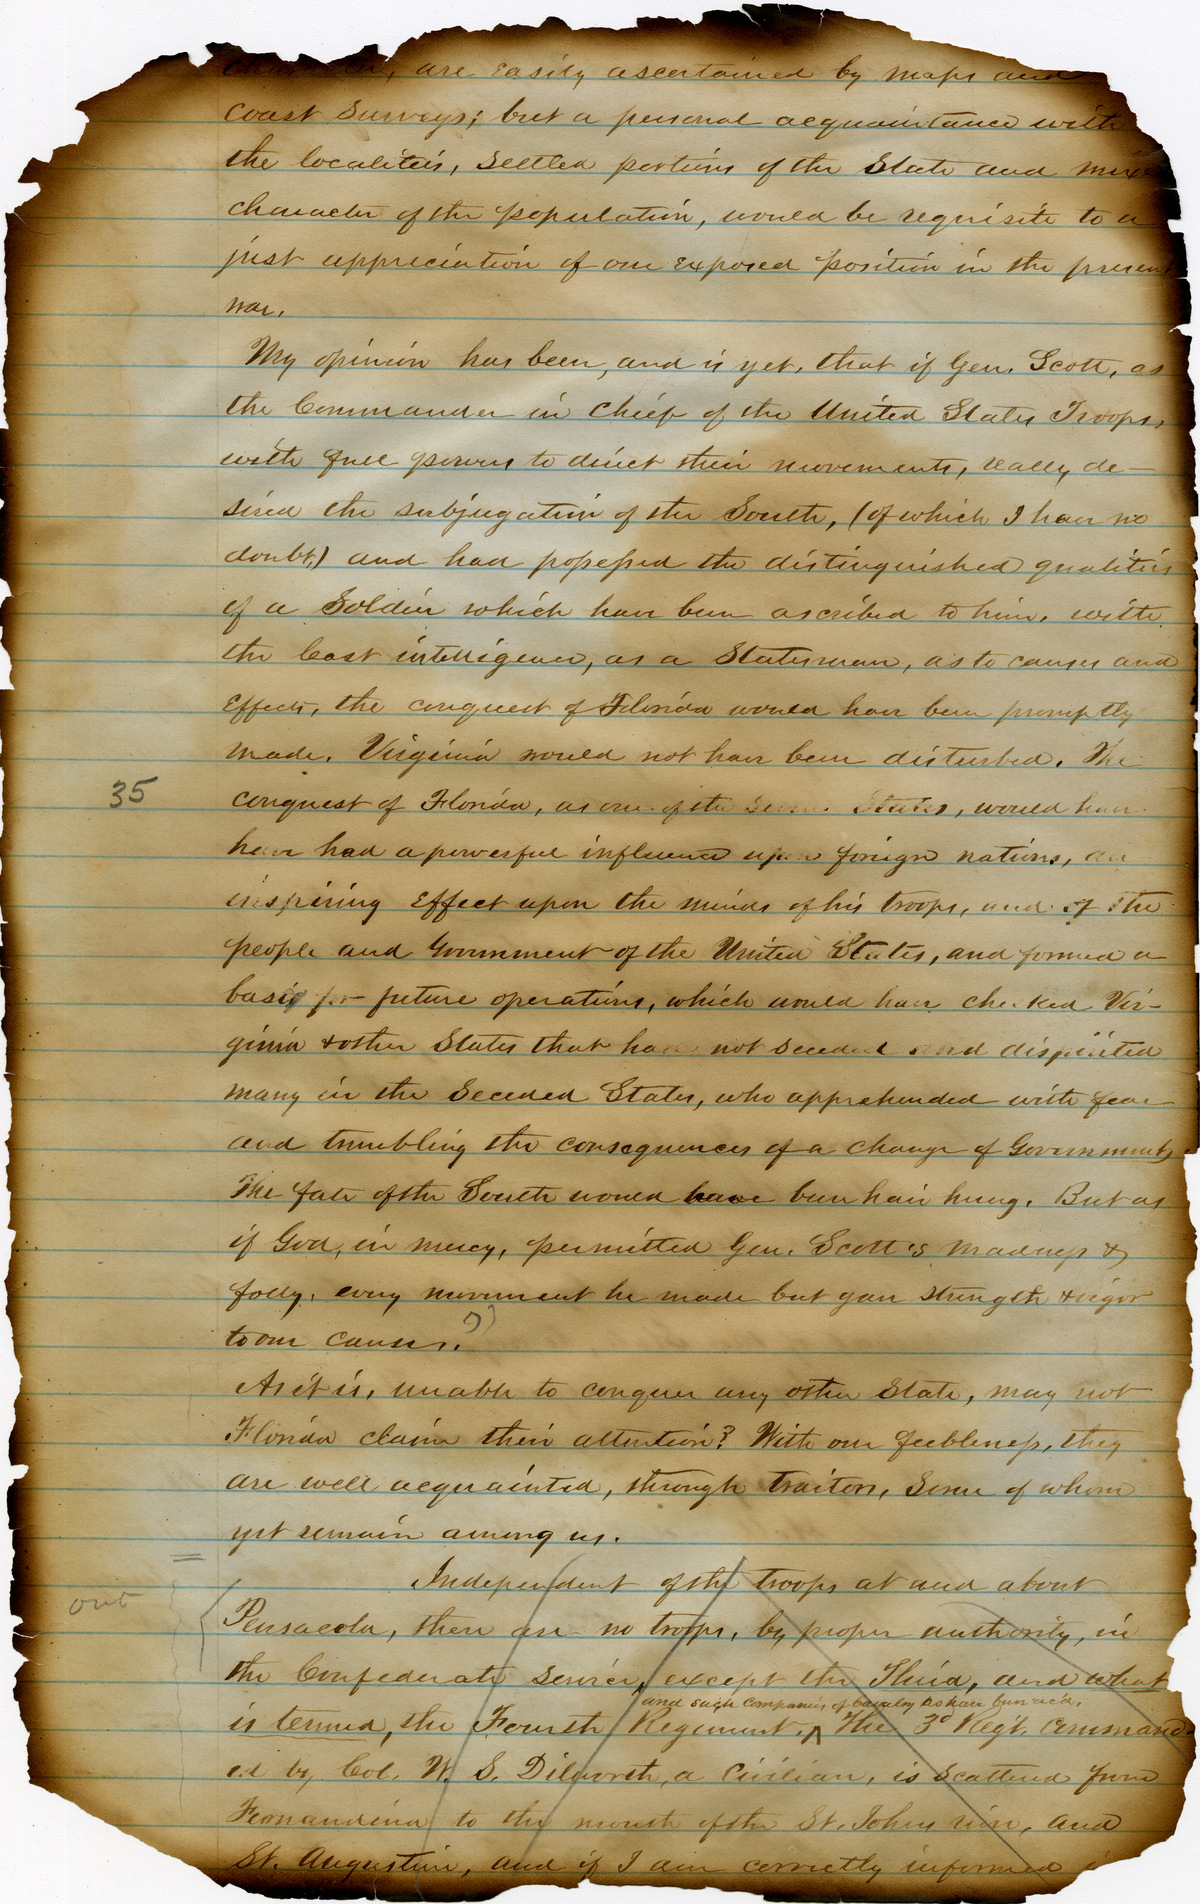 are easily ascertained by maps and
Coast Surveys; but a personal acquaintance with
the localities, settled portions of the State and
character of the population, would be requisite to a
just appreciation of our exposed position in the present
war.
My opinion has been, and is yet, that if Gen. Scott, as
the Commander in Chief of the United States Troops,
with full powers to direct their movements, really de-
sired the subjugation of the South, (of which I have no
doubt,) and had possessed the distinguished qualities
of a Soldier which have been ascribed to him, with
the least intelligence, as a Statesman, as to causes and
effects, the conquest of Florida would have been promptly
made. Virginia would not have been disturbed. The
35
conquest of Florida, as one of the States, would have
have had a powerful influence upon foreign nations, an
inspiring effect upon the minds of his troops, and of the
people and Government of the United States, and formed a
basis for future operations, which would have checked Vir-
ginia & other States that had not seceded and dispirited
many in the Seceded States, who apprehended with fear
and trembling the consequences of a change of Government,
The fate of the South would have been hair hung. But as
if God, in mercy, permitted Gen. Scott's madness &
folly, every movement he made but gave strength & vigor
to our causes.
As it is, unable to conquer any other State, may not
Florida claim their attention? With our feebleness, they
are well acquainted, through traitors, some of whom
yet remain among us.
Independent of the troops at and about
out
Pensacola, there are no troops, by proper authority, in
the Confederate service, except the Third, and what
and such companies of Cavalry as have been rec'd.
is termed, the Fourth Regiment, ^ The 3d Reg't. command-
ed by Col. W. S. Dilworth, a civilian, is scattered from
Fernandina to the mouth of the St. Johns river, and
St. Augustine, and if I am correctly informed